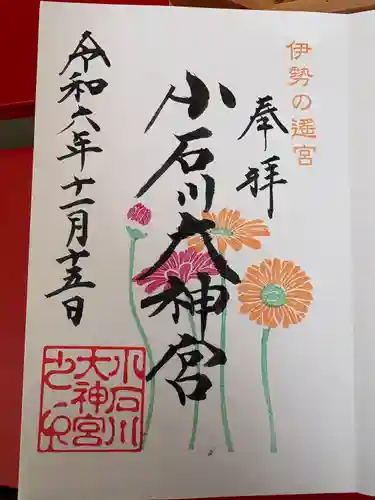 伊勢の遥宮
奉拝
小石川大神宮
令和六年十一月十五日
小石川
大神宮